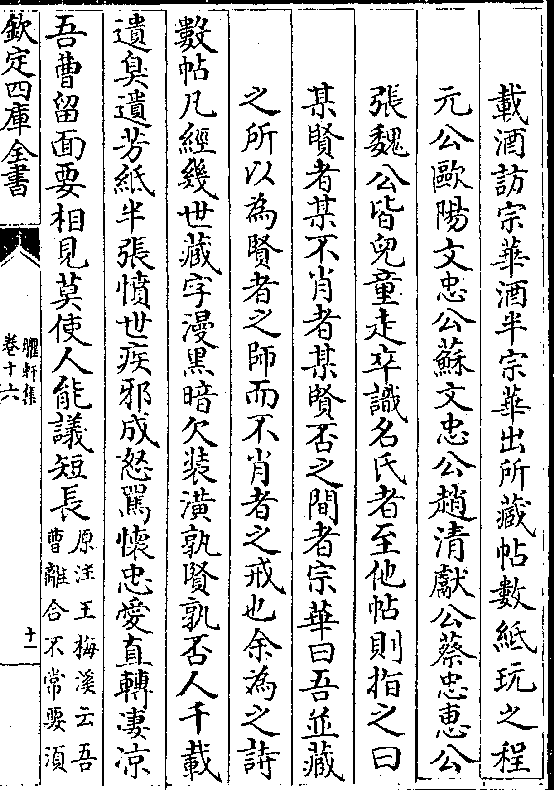 載酒訪宗華酒半宗華出所藏帖數紙玩之程
元公歐陽文忠公蘇文忠公趙清獻公蔡忠惠公
張魏公皆兒童走卒識名氏者至他帖則指之曰
某賢者某不肖者某賢否之間者宗華曰吾並藏
之所以為賢者之師而不肖者之戒也余為之詩
數帖凡經幾世藏字漫黒暗欠装潢孰賢孰否人千載
遺臭遺芳紙半張憤世疾邪成怒罵懷忠愛直轉凄凉
吾曹留面要相見莫使人能議短長原注王梅溪云吾
曹離合不常要須
欽定四庫全書
臞軒集
卷十六
十一